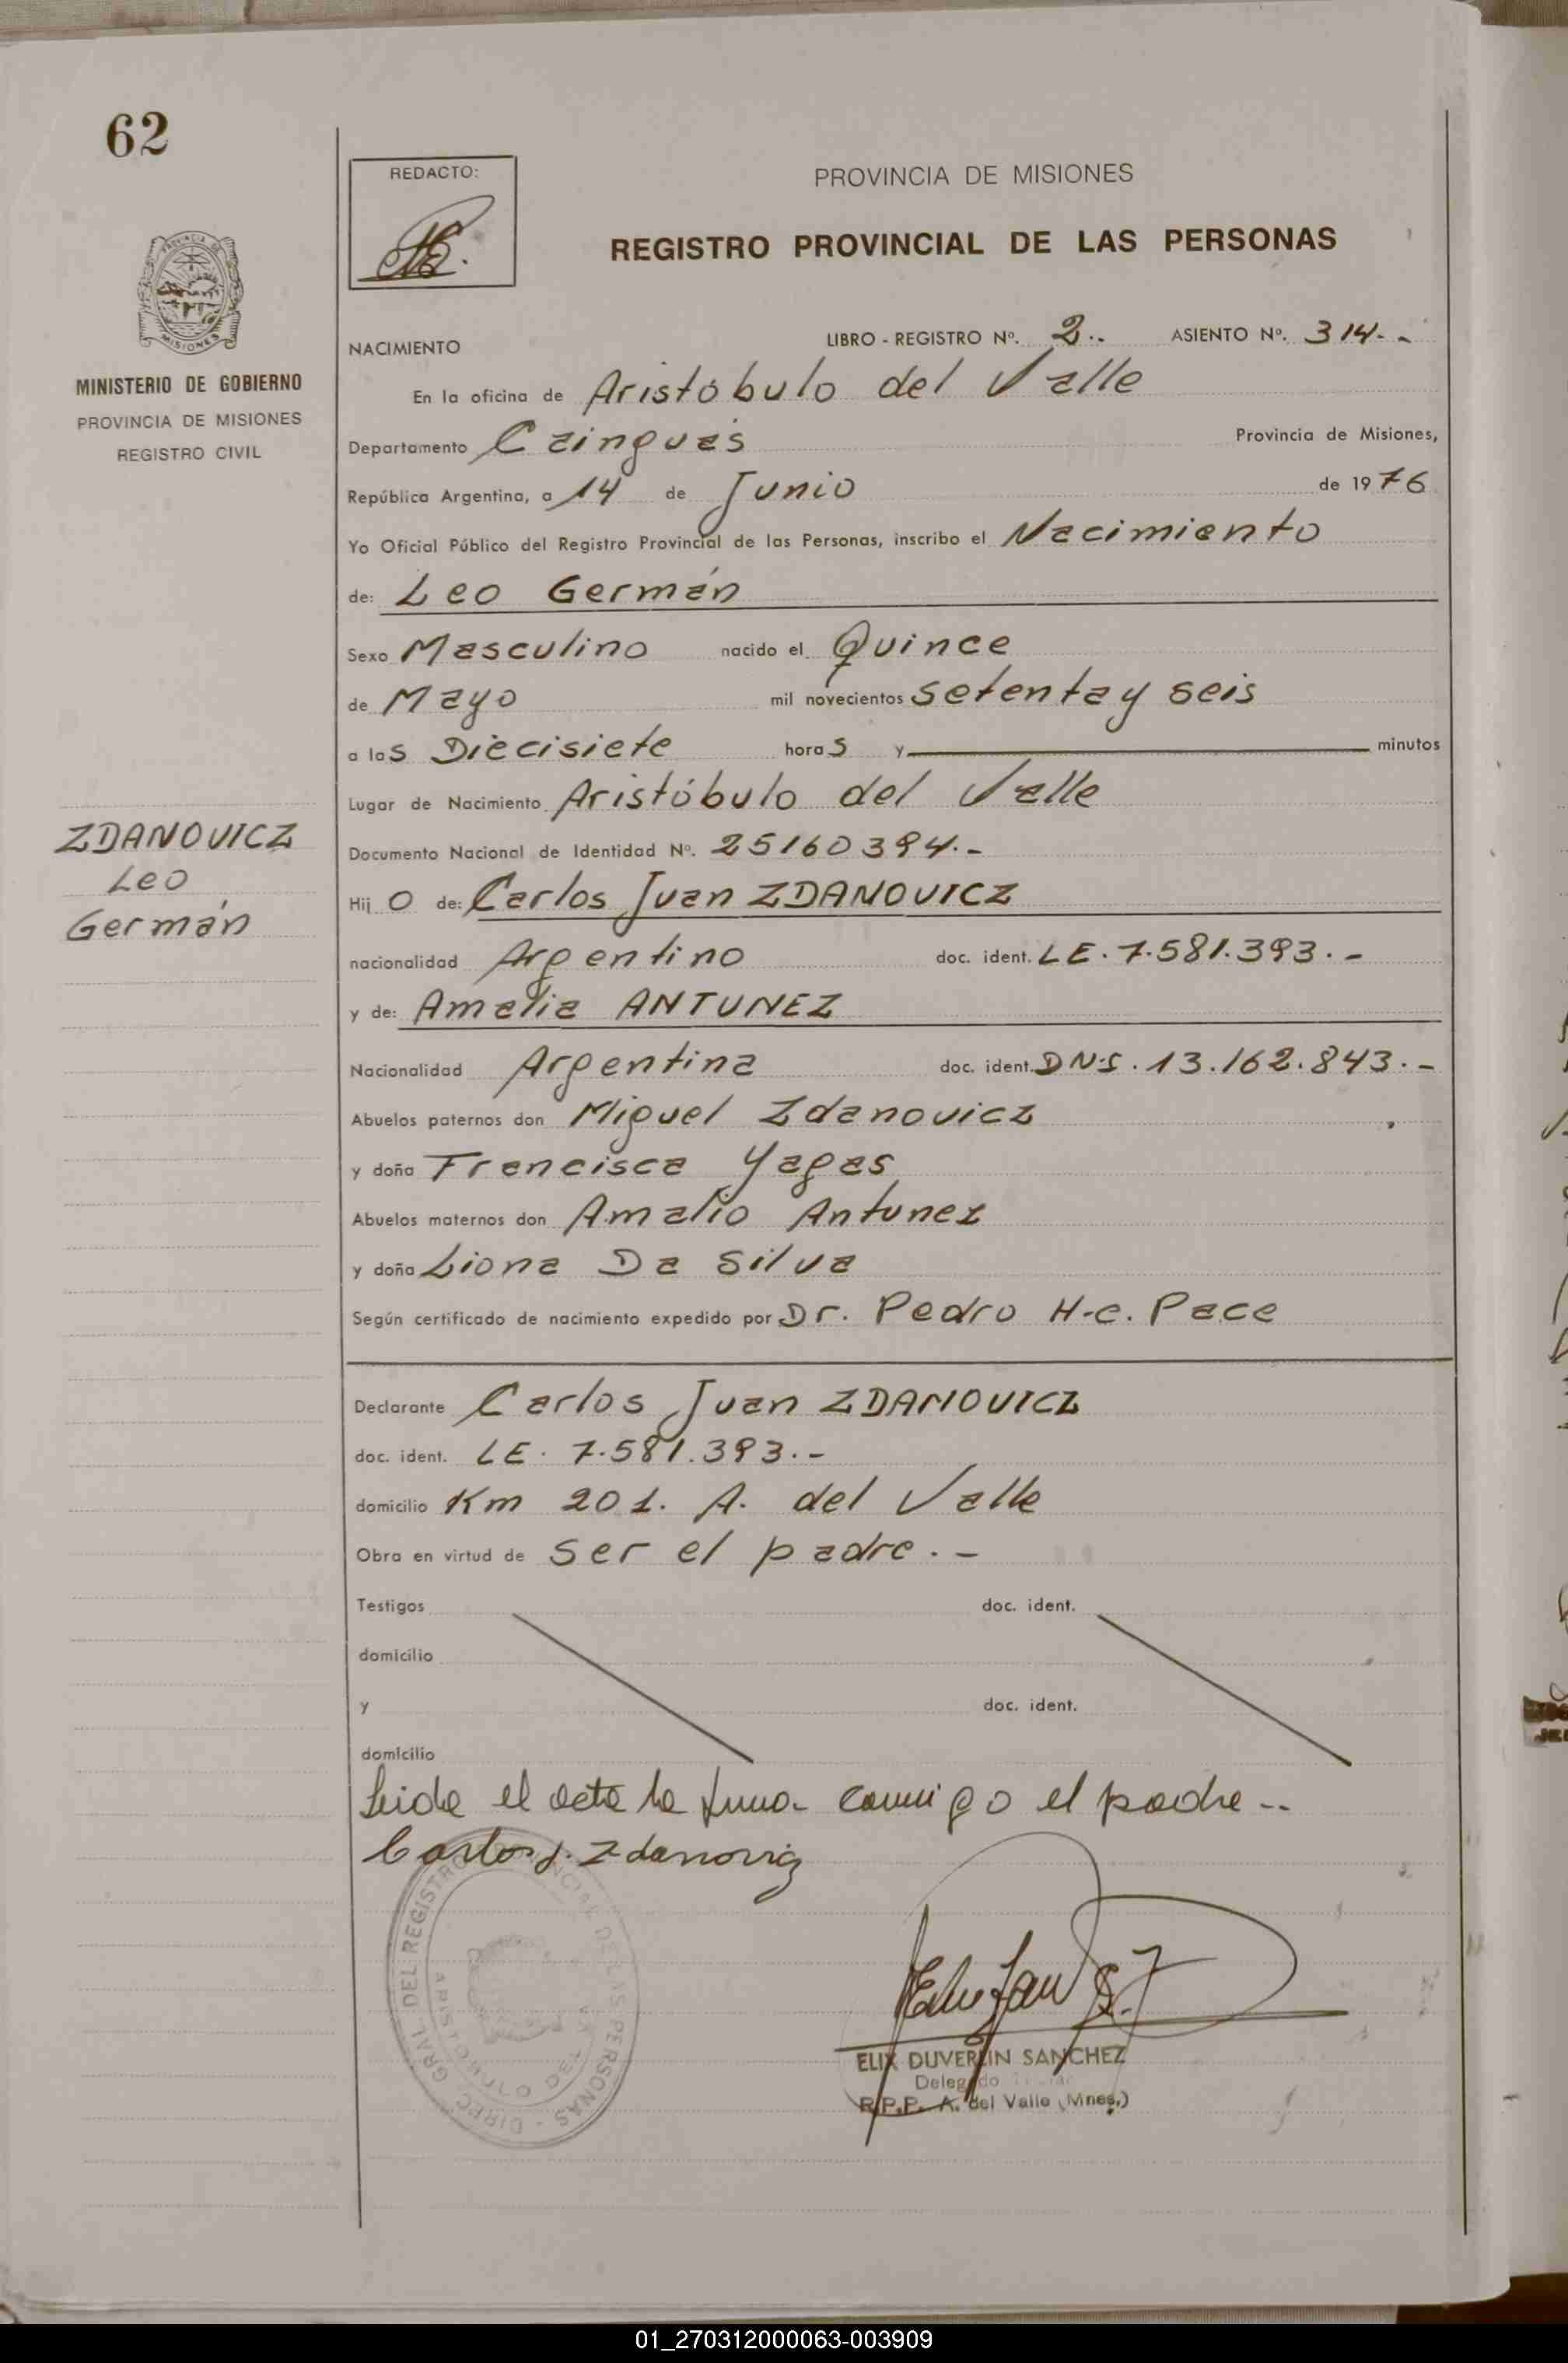 62
REDACTO:
PROVINCIA DE MISIONES
REGISTRO PROVINCIAL DE LAS PERSONAS
MISIONES
MINISTERIO DE GOBIERNO
PROVINCIA DE MISIONES
REGISTRO CIVIL
NACIMIENTO LIBRO - REGISTRO Nº. 2.. ASIENTO Nº. 314.-
En la oficina de Aristóbulo del Valle
Departamento Caingues Provincia de Misiones,
República Argentina, a 14 de Junio de 1976
Yo Oficial Público del Registro Provincial de las Personas, inscribo el Nacimiento
de: Leo Germán
Sexo Masculino nacido el Quince
de Mayo mil novecientos setenta y seis
a las Diecisiete horas y minutos
Lugar de Nacimiento Aristóbulo del Valle
Documento Nacional de Identidad Nº. 25160394.-
ZDANOVICZ
Leo
Germán
Hijo de: Carlos Juan ZDANOVICZ
nacionalidad Argentino doc. ident. LE. 7.581.393.-
y de: Amelia ANTUNEZ
Nacionalidad Argentina doc. ident. DNS. 13.162.843.-
Abuelos paternos don Miguel Zdanovicz
y doña Francisca Yagas
Abuelos maternos don Amalio Antunez
y doña Liona Da Silva
Según certificado de nacimiento expedido por Dr. Pedro H.C. Pace
Declarante Carlos Juan ZDANOVICZ
doc. ident. LE. 7.581.393.-
domicilio Km 201. A. del Valle
Obra en virtud de ser el padre.-
Testigos doc. ident.
domicilio
y doc. ident.
domicilio
Leida el acta la firma conmigo el padre--
Carlos J. Zdanovicz
DIREC. GRAL. DEL REGISTRO PROVINCIAL DE LAS PERSONAS
ARISTOBULO DEL VALLE
ELIX DUVERLIN SANCHEZ
Delegado
R.P.P. A. del Valle (Mnes.)
01_270312000063-003909